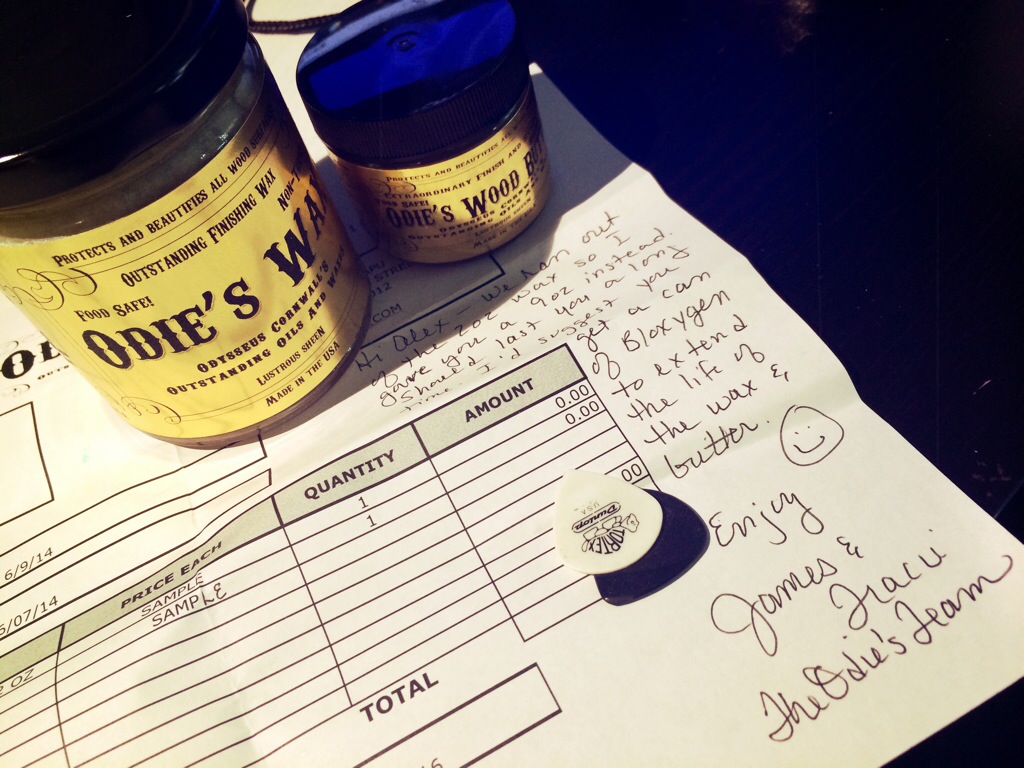 PROTECTS AND BEAUTIFIES ALL WOOD
OUTSTANDING FINISHING WAX
NON-T
FOOD SAFE!
ODIE'S WA
ODYSSEUS CORNWALL'S
OUTSTANDING OILS AND
LUSTROUS SHEEN
MADE IN THE USA
PROTECTS AND BEAUTIFIES
EXTRAORDINARY FINISH AND
FOOD SAFE!
ODIE'S WOOD BU
ODYSSEUS CORNW
OUTSTANDING OILS
LUSTROUS SHEEN
MADE IN
STREE
12
.COM
Hi Alex - We ran out
of the 2oz wax so I
gave you a 9oz instead.
Should last you a long
time. I'd suggest you
get a can
of Bloxygen
to extend
the life of
the wax &
butter.
Enjoy
James &
Traci
The Odie's Team
6/9/14
5/07/14
PRICE EACH
QUANTITY
AMOUNT
SAMPLE
1
0.00
SAMPLE
1
0.00
00
2 OZ
TOTAL
TORTEX
Dunlop
USA